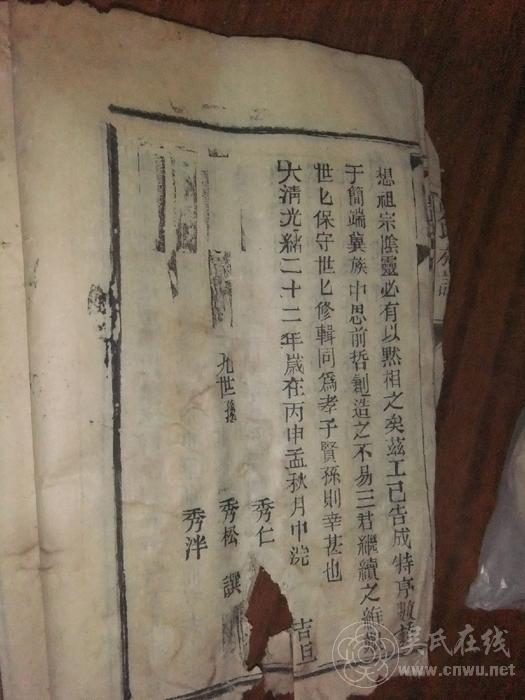 想祖宗陰靈必有以默相之矣茲工已告成特序數語
于簡端冀族中思前哲創造之不易三君繼續之維艱
世匕保守世匕修輯同為孝子賢孫則幸甚也
大清光緒二十二年歲在丙申孟秋月中浣 吉旦
秀仁
九世孫 秀松 撰
秀泮
吳氏在线
www.cnwu.net